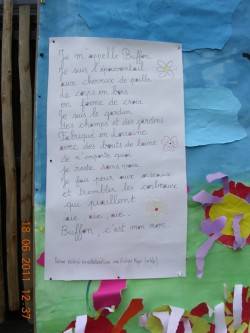 Je m'appelle Buffon
Je suis l'épouvantail
aux cheveux de paille
Le corps en bois
en forme de croix
Je suis le gardien
des champs et des jardins
Fabriqué en Lorraine
avec des bouts de laine
de n'importe quoi
je reste sans voix
Je fais peur aux oiseaux
et trembler les corbeaux
qui piaillent
aïe aïe, aïe..
Buffon, c'est mon nom.
en collaboration
18 06 2011 12:37